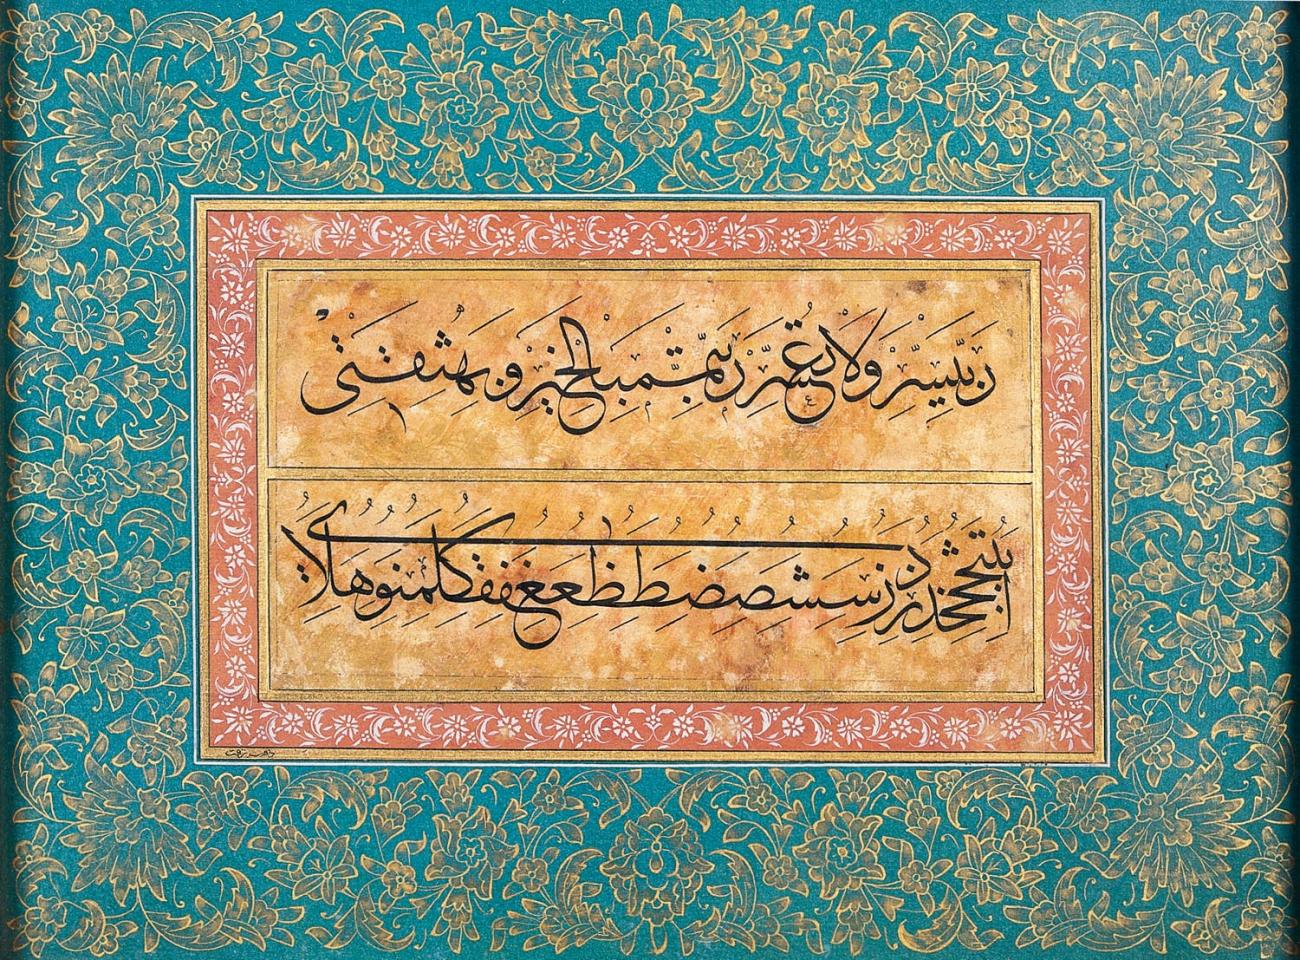 رَبِّ يَسِّرْ وَلَا تُعَسِّرْ رَبِّ تَمِّمْ بِالْخَيْرِ وَبِهِ ثِقَتِي
ابتثجحخدذرزسشصضطظعغفقكلمنوهلاى